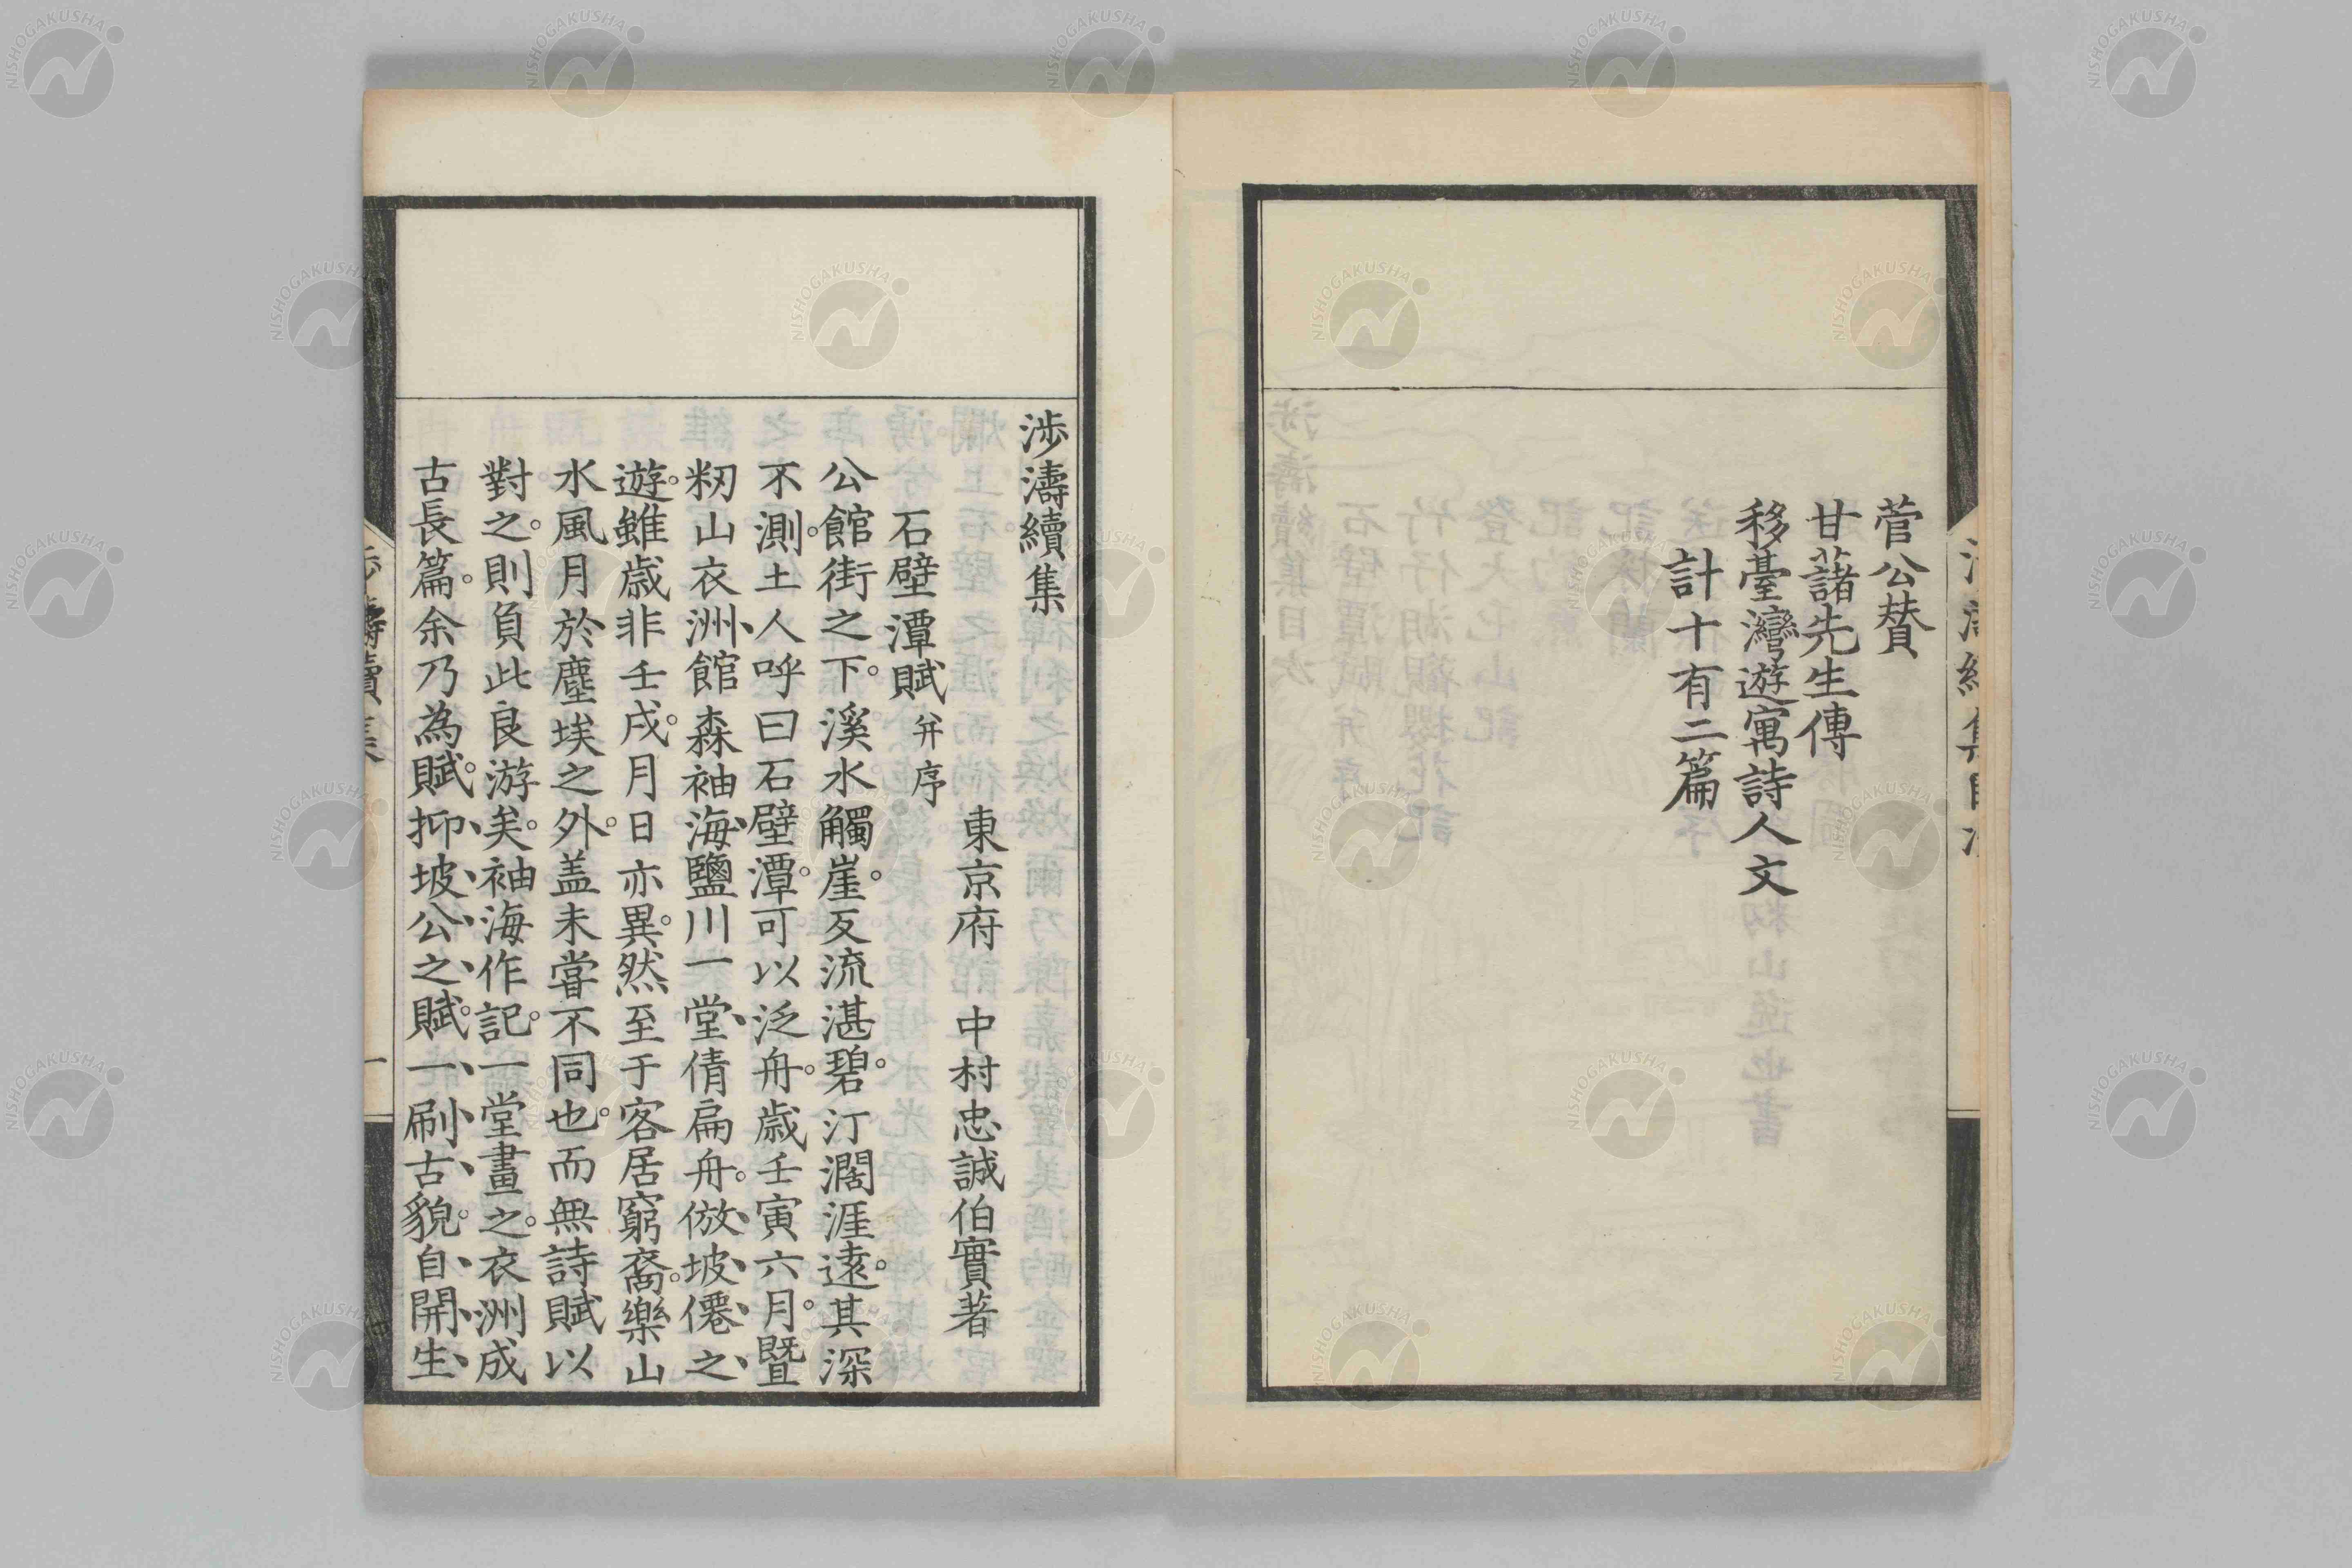 菅公賛
甘藷先生傳
移臺灣遊寓詩人文
計十有二篇
涉濤續集
東京府 中村忠誠伯實著
石壁潭賦 并序
公館街之下。溪水觸崖。反流湛碧。汀濶涯遠。其深
不測。土人呼曰石壁潭。可以泛舟。歳壬寅六月。曁
籾山衣洲、館森袖海、鹽川一堂、倩扁舟。倣坡僊之
遊。雖歳非壬戌。月日亦異。然至于客居窮裔。樂山
水風月於塵埃之外。盖未甞不同也。而無詩賦以
對之。則負此良游矣。袖海作記。一堂畫之。衣洲成
古長篇。余乃為賦。抑、坡、公、之、賦。一、刷、古、貌。自、開、生、
NISHOGAKUSHA